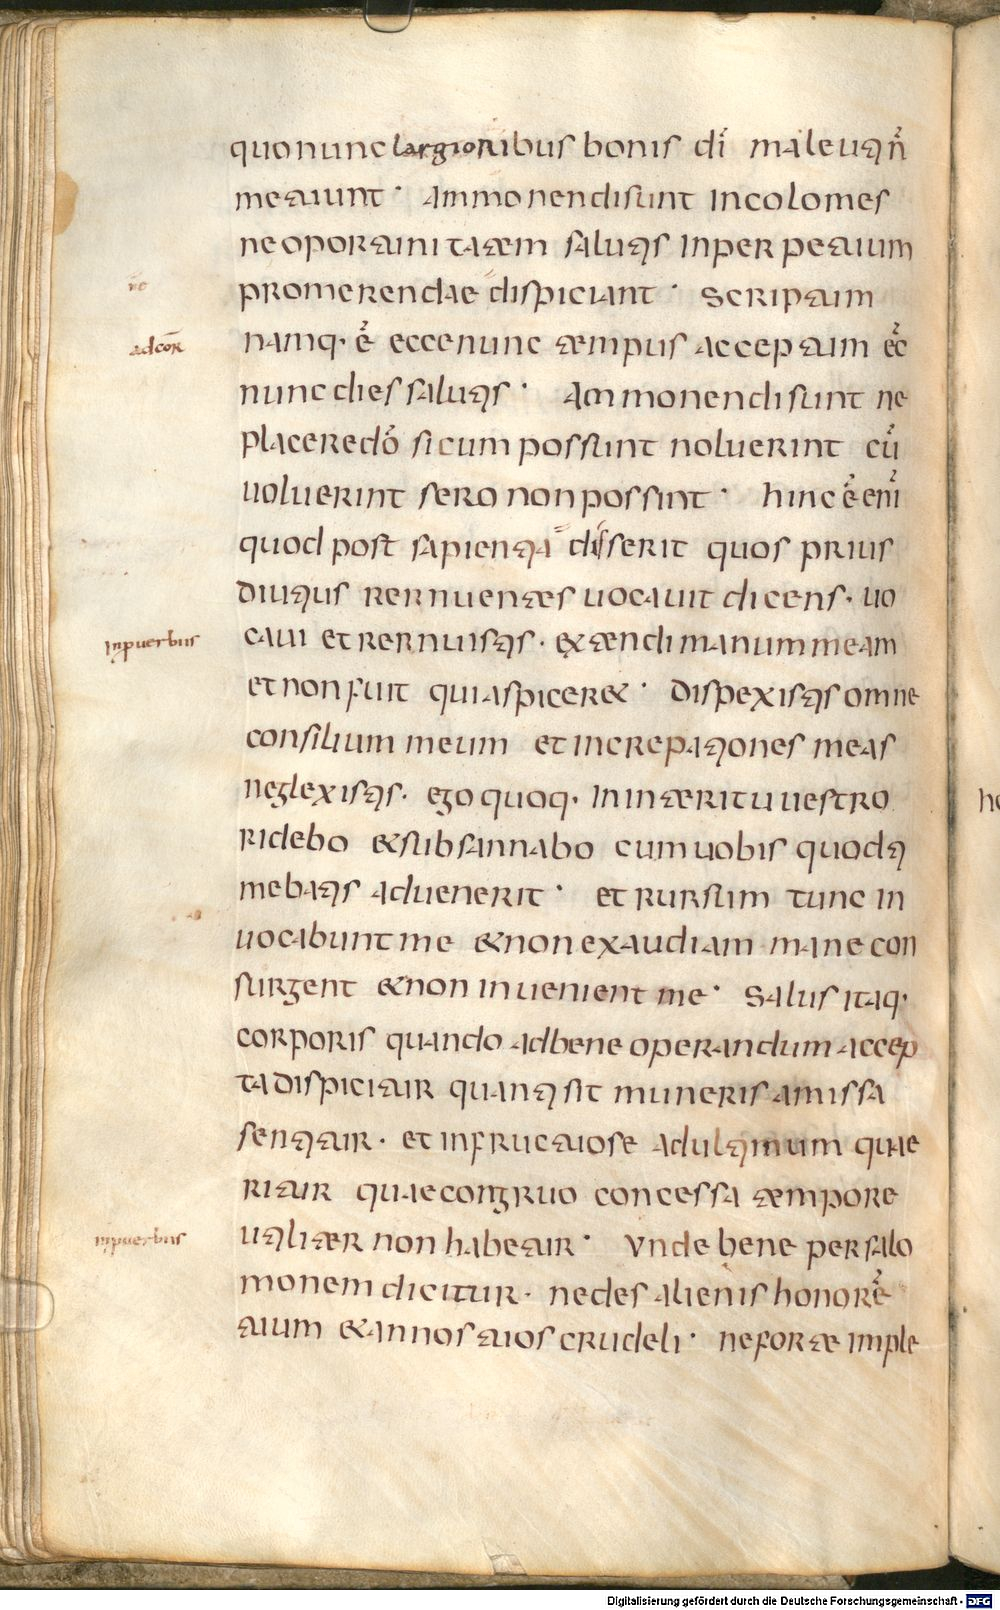 quo nunc largioribus bonis dī male uti ñ
metuunt · Ammonendi sunt incolomes
ne oportunitatem salutis in perpetuum
promerendae dispiciant · Scriptum
namq· ē ecce nunc tempus acceptum ec̄
ad cor̄
nunc dies salutis · Ammonendi sunt ne
placere dō si cum possunt noluerint cū
uoluerint sero non possint · hinc ē enī
quod post sapientia diserit quos prius
diutius rernuentes uocauit dicens · uo
caui et rernuistis · extendi manum meam
in puerbiis
et non fuit qui aspiceret · Dispexistis omne
consilium meum et increpationes meas
neglexistis · ego quoq· in interitu uestro
ridebo & subsannabo cum uobis quod ti
mebatis aduenerit · et rursum tunc in
uocabunt me & non exaudiam mane con
surgent & non inuenient me · Salus itaq·
corporis quando ad bene operandum accep
ta dispicitur quanti sit muneris amissa
sentitur · et infructuose ad ultimum quae
ritur quae congruo concessa tempore
utiliter non habetur · Vnde bene per salo
in puerbiis
monem dicitur · ne des alienis honorē
tuum & annos tuos crudeli · ne forte imple
Digitalisierung gefördert durch die Deutsche Forschungsgemeinschaft - DFG